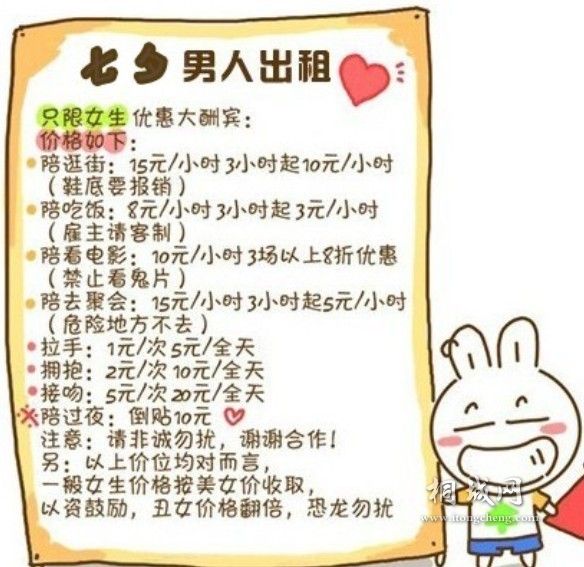 七夕男人出租
只限女生优惠大酬宾：
价格如下：
陪逛街：15元/小时 3小时起10元/小时
（鞋底要报销）
陪吃饭：8元/小时 3小时起 3元/小时
（雇主请客制）
陪看电影：10元/小时 3场以上8折优惠
（禁止看鬼片）
陪去聚会：15元/小时 3小时起5元/小时
（危险地方不去）
拉手：1元/次 5元/全天
拥抱：2元/次 10元/全天
接吻：5元/次 20元/全天
※陪过夜：倒贴10元
注意：请非诚勿扰，谢谢合作！
另：以上价位均对而言，
一般女生价格按美女价收取，
以资鼓励，丑女价格翻倍，恐龙勿扰
相城网
www.itongcheng.com